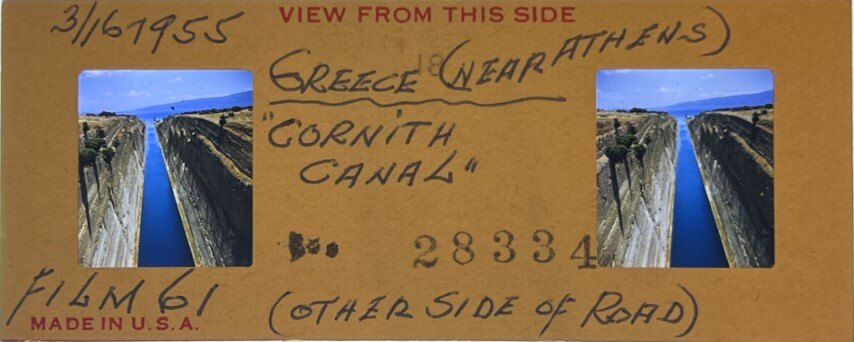 VIEW FROM THIS SIDE
3/16 1955
GREECE (NEAR ATHENS)
"CORNITH
CANAL"
28334
FILM 61
(OTHER SIDE OF ROAD)
MADE IN U.S.A.